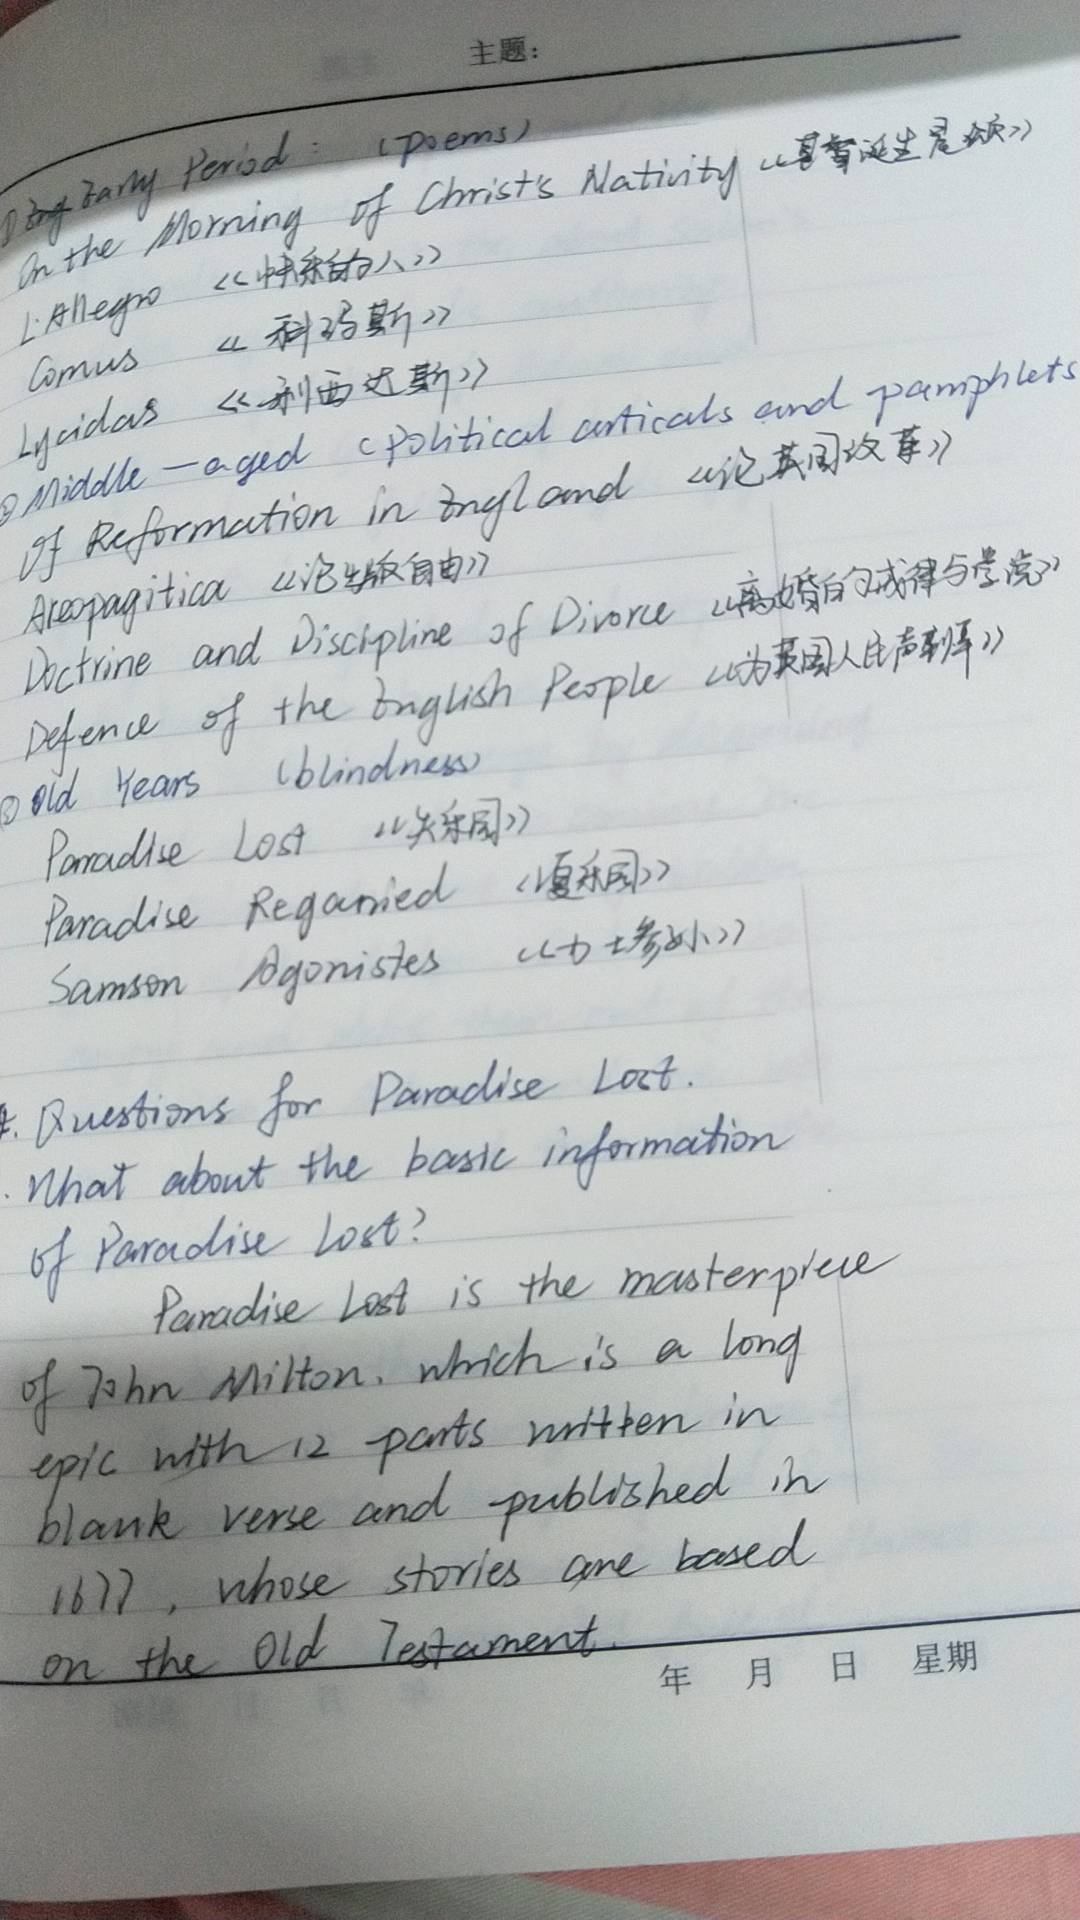 主题:
① Early Period: (poems)
On the Morning of Christ's Nativity 《基督诞生晨颂》
L'Allegro 《快乐的人》
Comus 《科玛斯》
Lycidas 《利西达斯》
② Middle-aged (political articals and pamphlets
Of Reformation in England 《论英国改革》
Areopagitica 《论出版自由》
Doctrine and Discipline of Divorce 《离婚的戒律与学说》
Defence of the English People 《为英国人民声辩》
③ Old Years (blindness)
Paradise Lost 《失乐园》
Paradise Reganied 《复乐园》
Samson Agonistes 《力士参孙》
Questions for Paradise Lost.
What about the basic information
of Paradise Lost?
Paradise Lost is the masterpiece
of John Milton, which is a long
epic with 12 parts written in
blank verse and published in
1677, whose stories are based
on the Old Testament.
年 月 日 星期